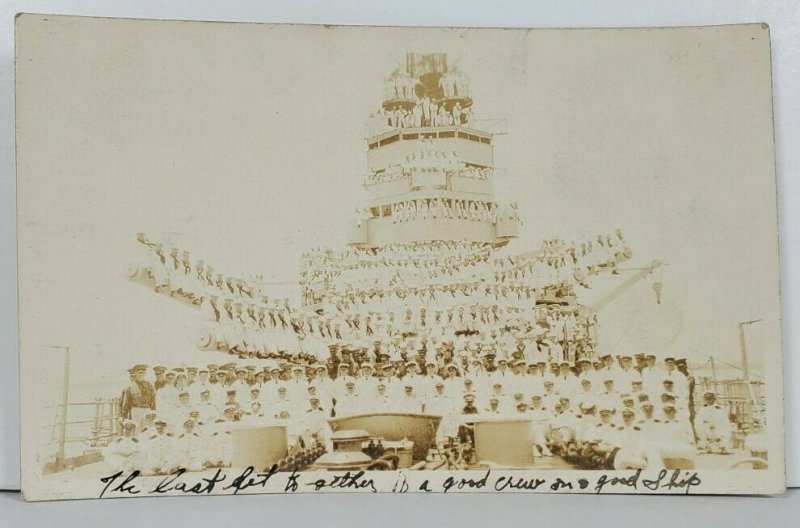 The Last Get to gether is a good crew on a good Ship